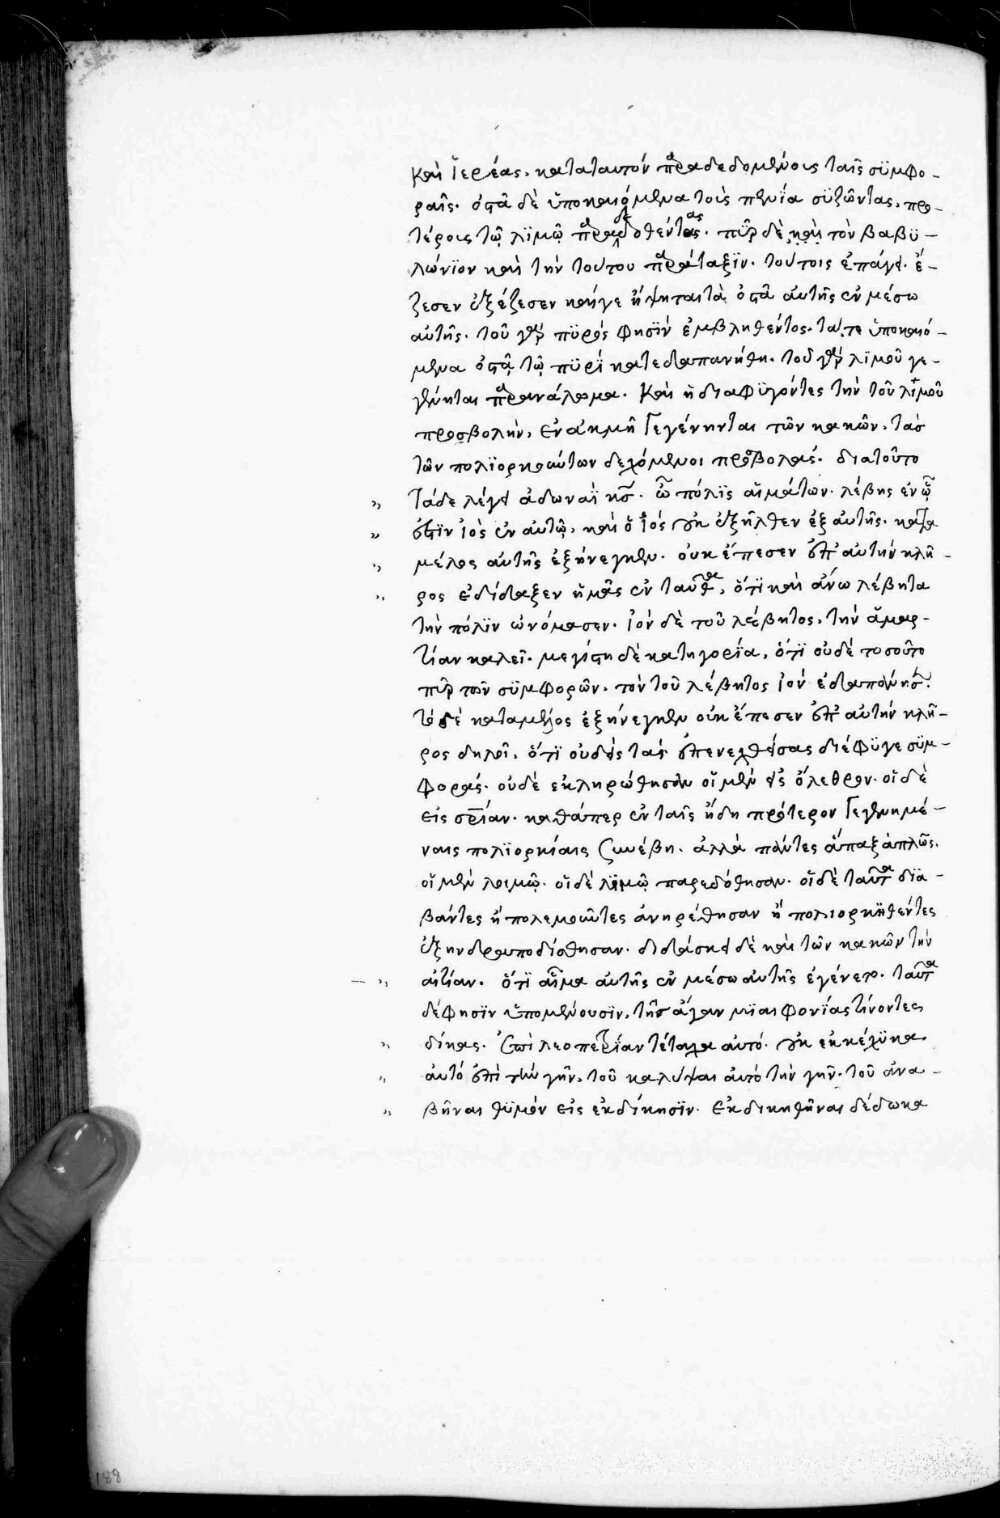 καὶ ἱερέας. κατὰ ταυτὸν παραδεδομένους ταῖς συμφο-
ραῖς. ὀστᾶ δὲ ὑποκαιόμενα τοὺς πενία συζῶντας. προ-
τέροις τῷ λιμῷ παραδοθέντας. πῦρ δὲ καὶ τὸν βαβυ-
λώνιον καὶ τὴν τούτου παράταξιν. τούτοις ἐπάγει. ἔ-
ζεσεν ἐξέζεσεν καίγε ἥψηται τὰ ὀστᾶ αὐτῆς ἐν μέσω
αὐτῆς. τοῦ γὰρ πυρός φησιν ἐμβληθέντος. τά τε ὑποκαιό-
μενα ὀστᾶ τῷ πυρὶ κατεδαπανήθη. τοῦ γὰρ λιμοῦ γε-
γένηται παρανάλωμα. καὶ ἢ διαφυγόντες τὴν τοῦ λιμοῦ
προσβολὴν, ἐν ἀκμῇ γεγένηνται τῶν κακῶν. τὰς
τῶν πολιορκούντων δεχόμενοι προσβολάς. διατοῦτο
„ τάδε λέγει ἀδωναῒ κς. ὦ πόλις αἱμάτων. λέβης ἐν ᾧ
„ ἐστὶν ἰὸς ἐν αὐτῷ. καὶ ὁ ἰὸς οὐκ ἐξῆλθεν ἐξ αὐτῆς. κατα
„ μέλος αὐτῆς ἐξήνεγκεν. οὐκ ἔπεσεν ἐπ αὐτὴν κλῆ-
„ ρος ἐδίδαξεν ἡμᾶς ἐν ταῦθα, ὅτι καὶ ἄνω λέβητα
τὴν πόλιν ὠνόμασεν. ἰὸν δὲ τοῦ λέβητος, τὴν ἁμαρ-
τίαν καλεῖ. μεγίστη δὲ κατηγορία, ὅτι οὐδὲ τοσοῦτο
πῦρ τῶν συμφορῶν. τὸν τοῦ λέβητος ἰὸν ἐδαπάνησε.
τὸ δὲ καταμέλος ἐξήνεγκεν οὐκ ἔπεσεν ἐπ αὐτὴν κλῆ-
ρος δηλοῖ. ὅτι οὐδεὶς τὰς ἐπενεχθείσας διέφυγε συμ-
φοράς. οὐδὲ ἐκληρώθησαν οἱ μὲν εἰς ὄλεθρον. οἱ δὲ
εἰς σρίαν. καθάπερ ἐν ταῖς ἤδη πρότερον γεγενημέ-
ναις πολιορκίαις συνέβη. ἀλλὰ πάντες ἅπαξ ἁπλῶς.
οἱ μὲν λοιμῷ. οἱ δὲ λιμῷ παρεδόθησαν. οἱ δὲ ταῦτα δια-
βάντες ἢ πολεμοῦντες ἀνῃρέθησαν ἢ πολιορκηθέντες
ἐξηνδραποδίσθησαν. διδάσκει δὲ καὶ τῶν κακῶν τὴν
— „ αἰτίαν. ὅτι αἷμα αὐτῆς ἐν μέσω αὐτῆς ἐγένετο. ταῦτα
δέ φησιν ὑπομένουσιν, τῆς ἄγαν μιαιφονίας τίνοντες
„ δίκας. ἐπὶ λεοπετρίαν τέταχα αὐτό. οὐκ ἐκκέχυκα
„ αὐτὸ ἐπὶ τὴν γῆν. τοῦ καλύψαι αὐτὸ τὴν γῆν. τοῦ ἀνα-
„ βῆναι θυμὸν εἰς ἐκδίκησιν. ἐκδικηθῆναι δέδωκα
188